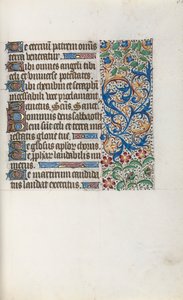 Te eternū patrem omnis
terra veneratur.
Tibi omnes angeli tibi
celi et universe potestates.
Tibi cherubin et seraphin
incessabili voce proclamant.
Sanctus. Sanctus. Sanctus.
Dominus deus sabbaoth.
Pleni sunt celi et terra ma
iestatis glorie tue.
Te gloriosus aplor chorus.
Te prophetar laudabilis nu
merus.
Te martirum candida
tus laudat exercitus.